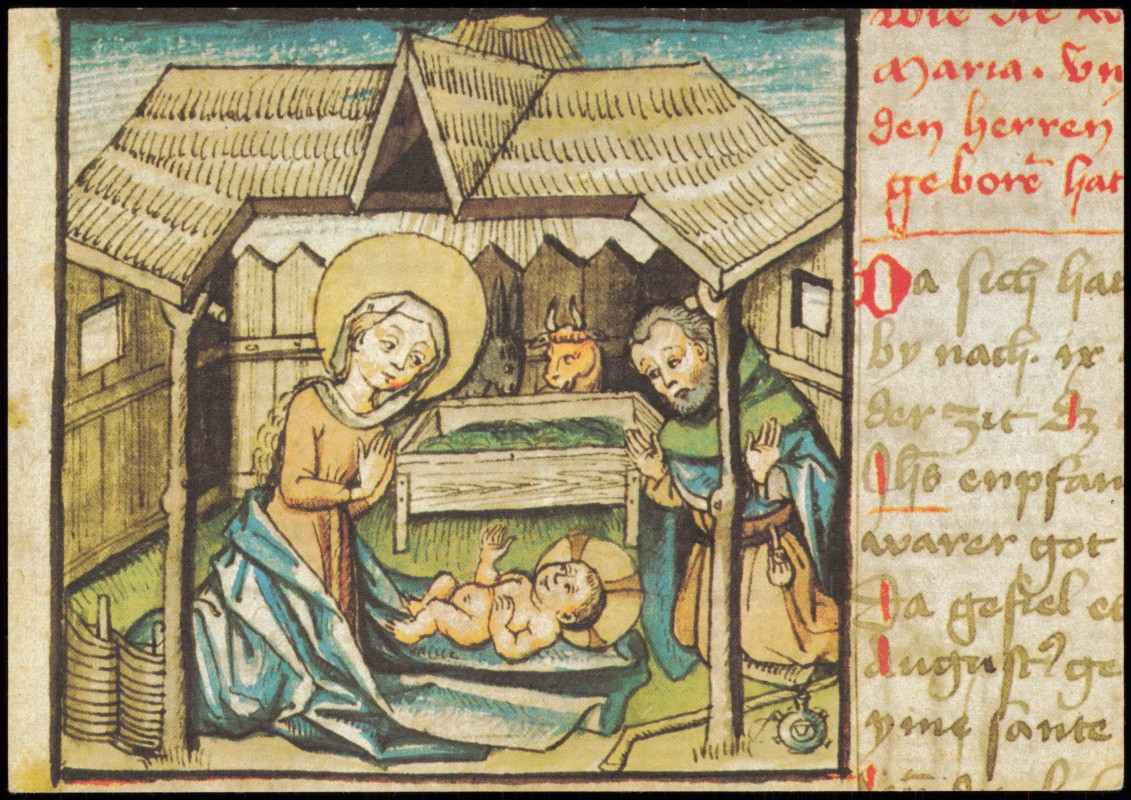 wie die
Maria. Vn
den herren
geborē hat
Da sich hat
by nach. ix
der zit dz
Jhs enpfan
warer got
Da gefiel es
August9 ge
yme sante